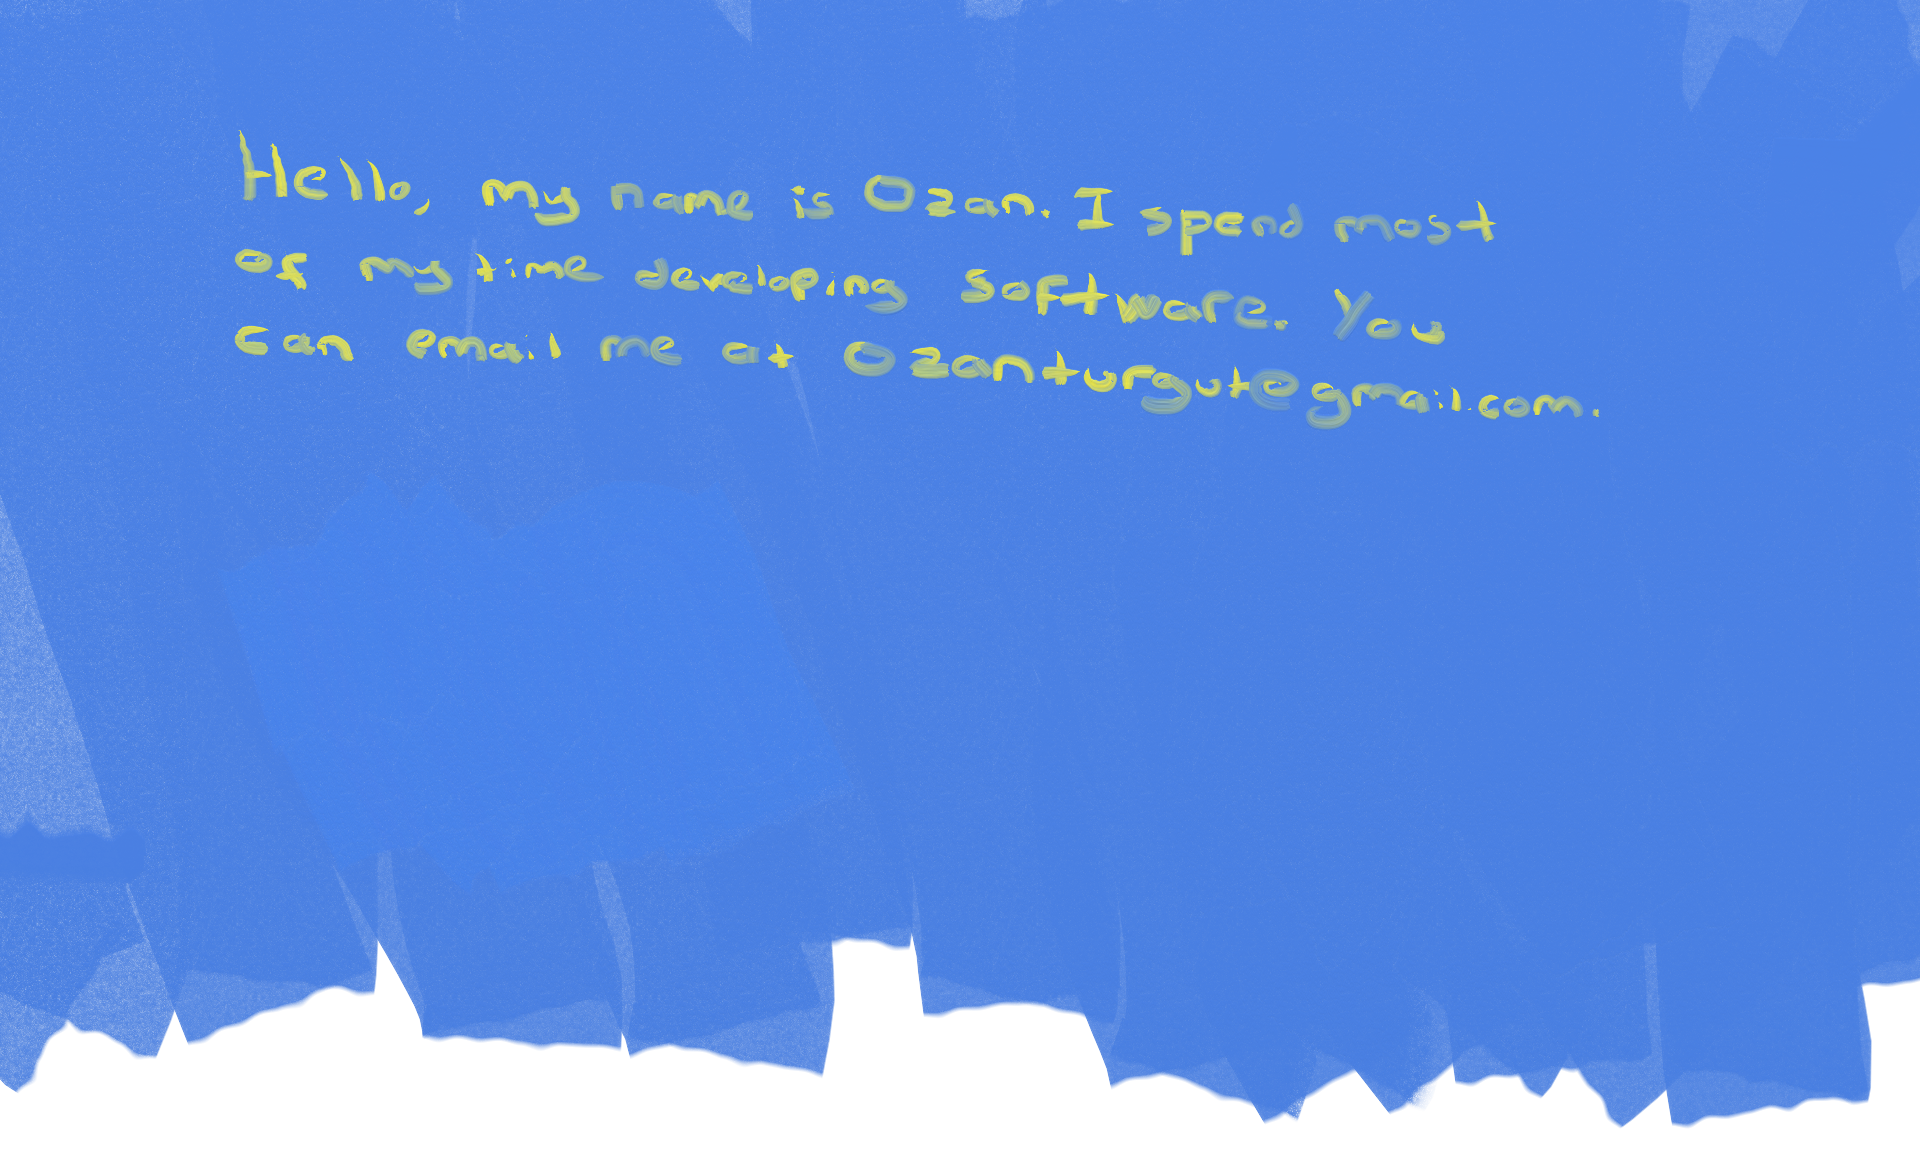 Hello, my name is Ozan. I spend most
of my time developing software. You
can email me at ozanturgut@gmail.com.